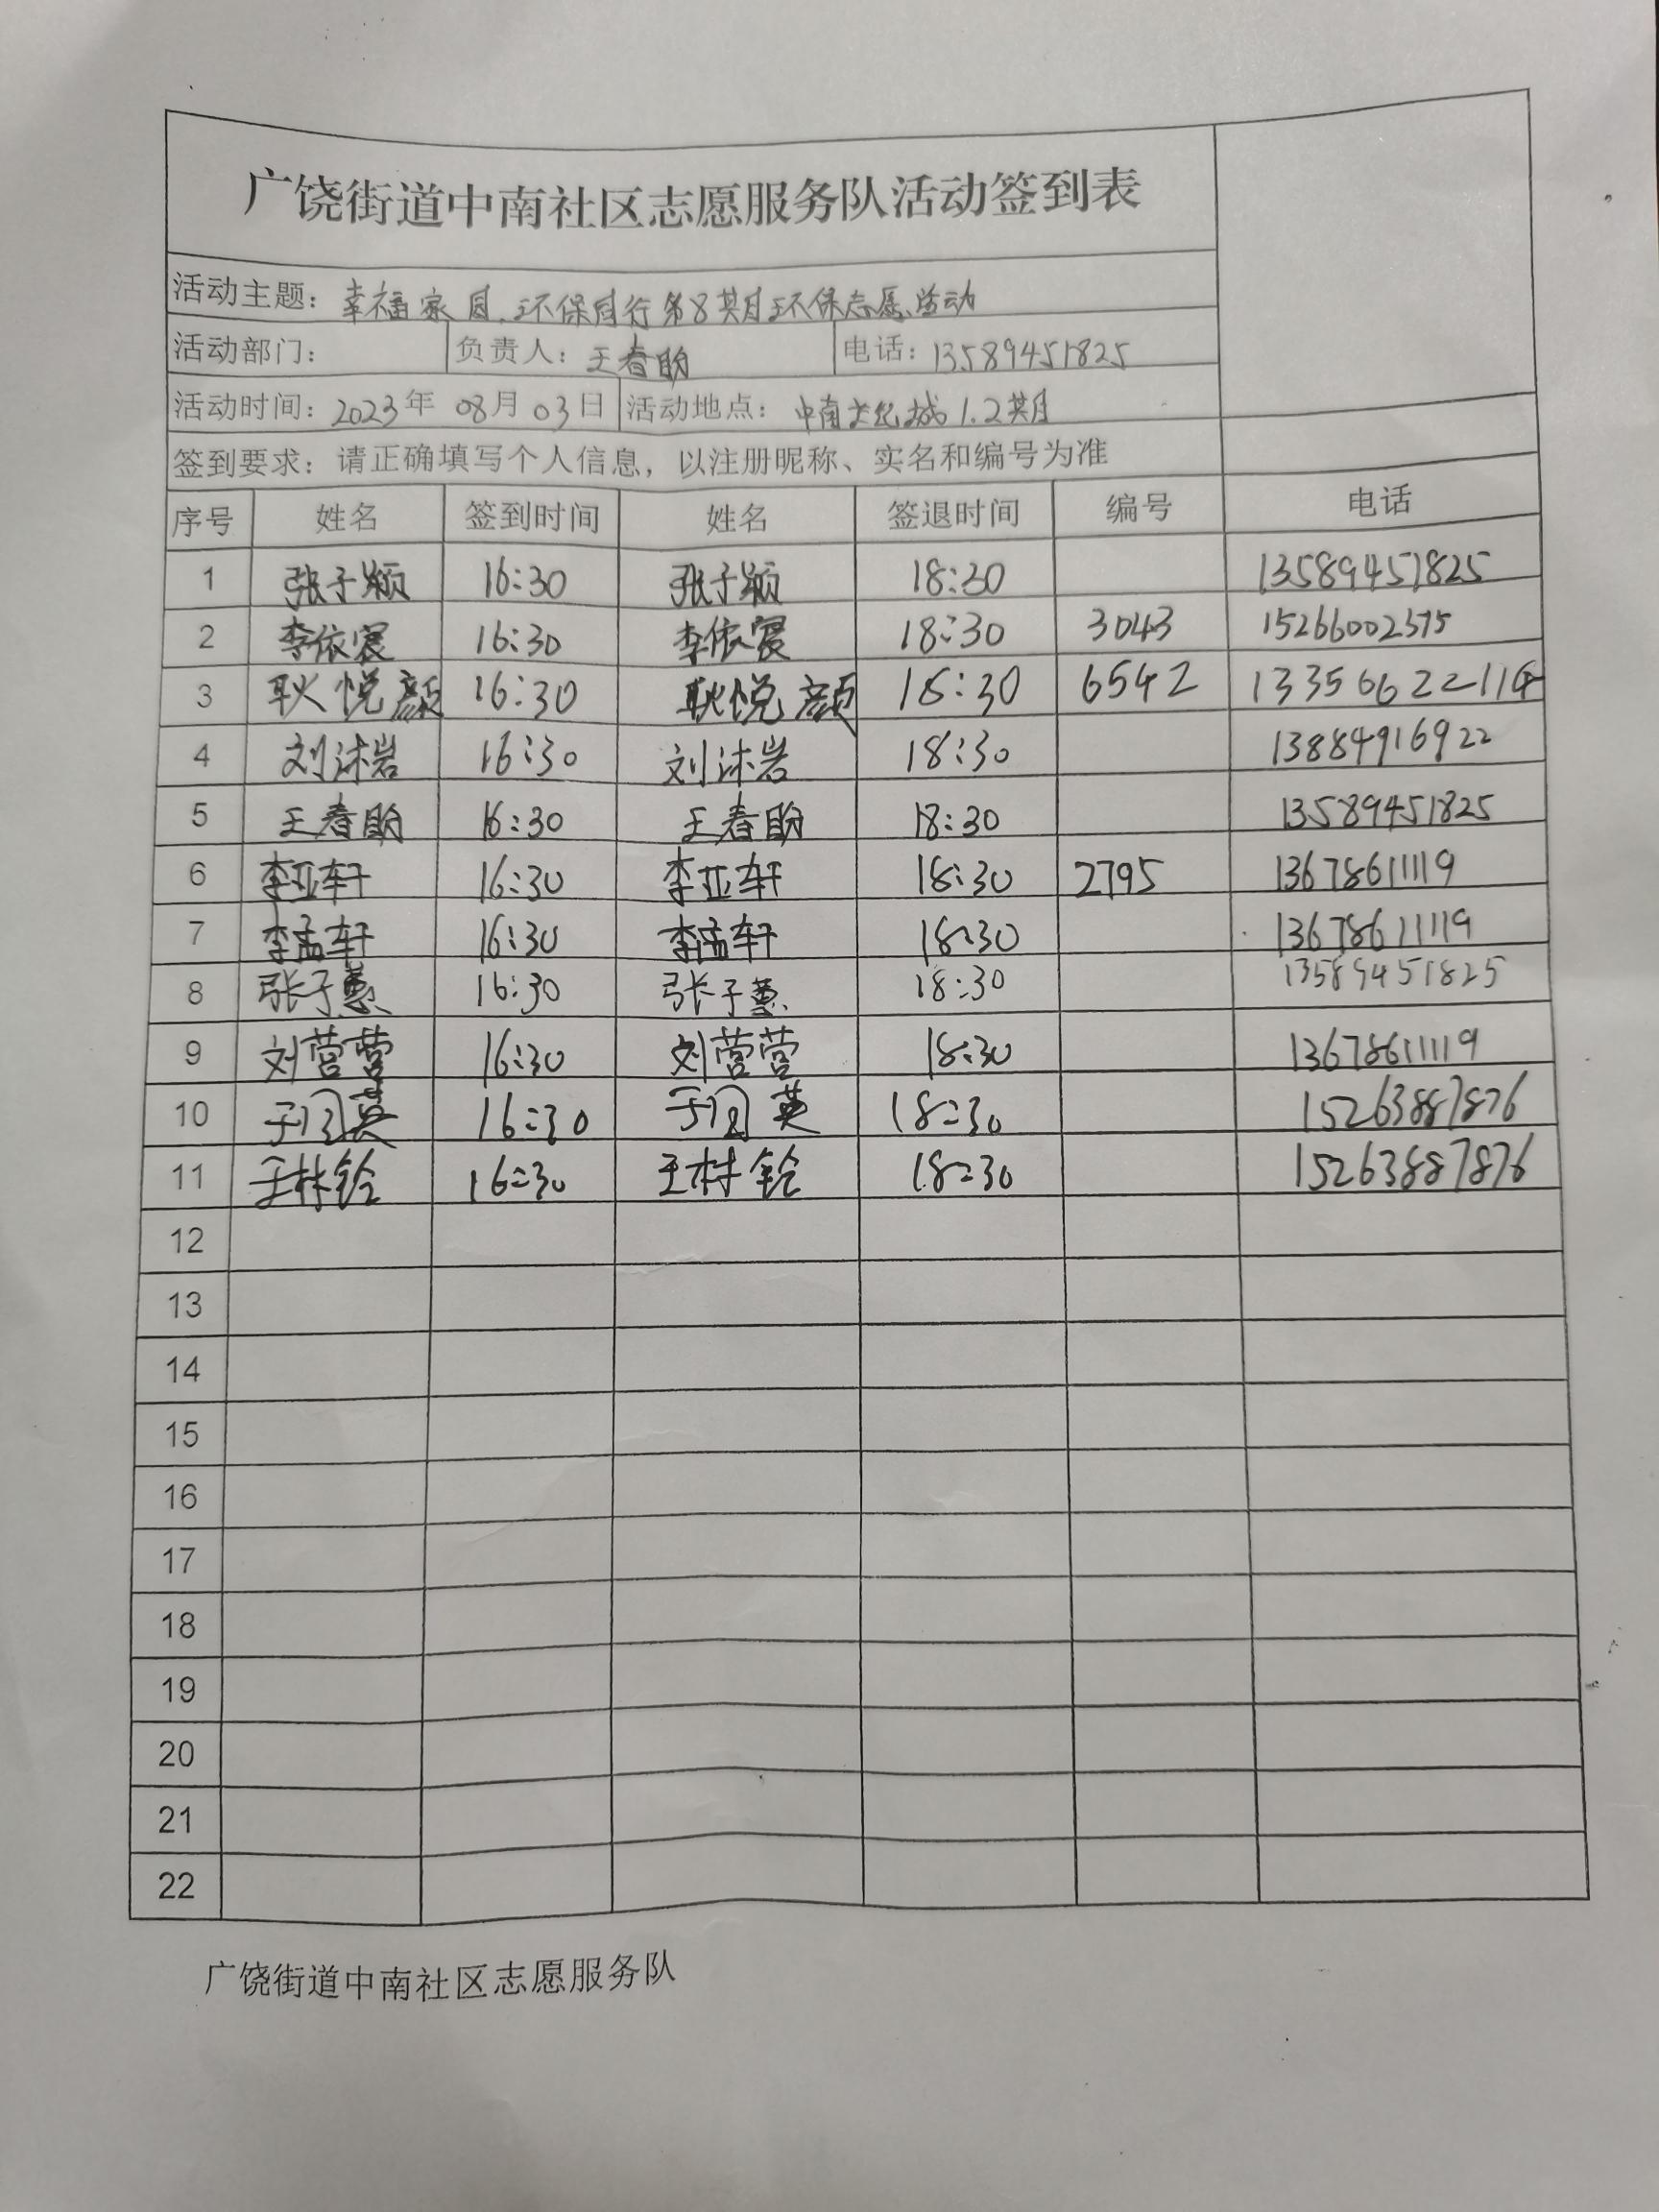 广饶街道中南社区志愿服务队活动签到表
活动主题：幸福家园、环保同行第8期环保志愿活动
活动部门： 负责人：王春盼 电话：13589451825
活动时间：2023年 08月 03日 活动地点：中南文化城1.2期
签到要求：请正确填写个人信息，以注册昵称、实名和编号为准
序号 姓名 签到时间 姓名 签退时间 编号 电话
1 张子颖 16:30 张子颖 18:30 13589451825
2 李依宸 16:30 李依宸 18:30 3043 15266002375
3 耿悦颜 16:30 耿悦颜 18:30 6542
4 刘沐岩 16:30 刘沐岩 18:30 13884916922
5 王春盼 16:30 王春盼 18:30 13589451825
6 李亚轩 16:30 李亚轩 18:30 2795 13678611119
7 李孟轩 16:30 李孟轩 18:30 13678611119
8 张子蕙 16:30 张子蕙 18:30 13589451825
9 刘营营 16:30 刘营营 18:30 13678611119
10 16:30 18:30 15263887876
11 王林铨 16:30 王林铨 18:30 15263887876
12
13
14
15
16
17
18
19
20
21
22
广饶街道中南社区志愿服务队